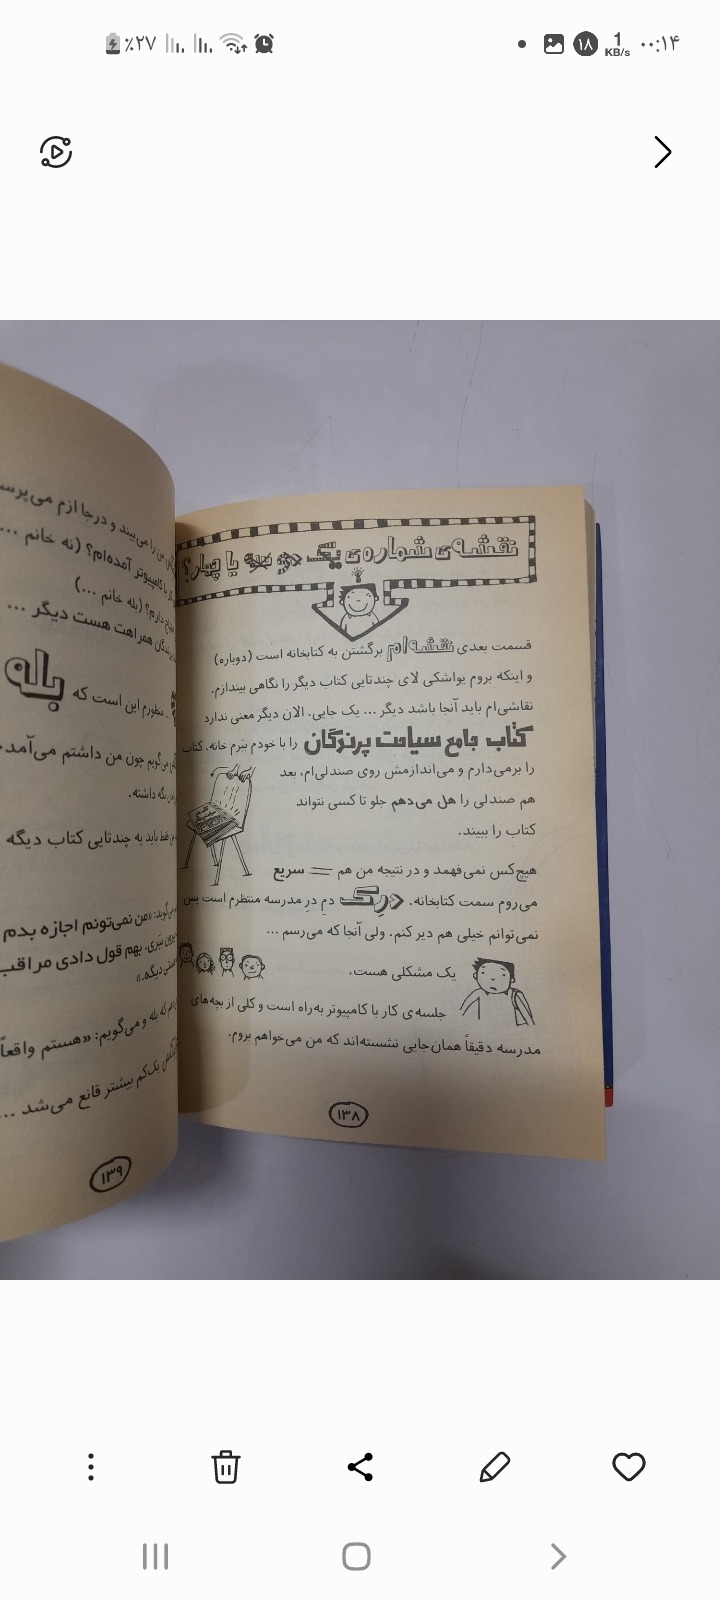 ٪۲۷
۱۸
1
KB/s
۰۰:۱۴
نقشه‌ی شماره‌ی یک دو سه یا چهار؟
قسمت بعدی نقشه‌ام برگشتن به کتابخانه است (دوباره)
و اینکه بروم یواشکی لای چندتایی کتاب دیگر را نگاهی بیندازم.
نقاشی‌ام باید آنجا باشد دیگر ... یک جایی. الان دیگر معنی ندارد
کتاب جامع سیاحت پرندگان را با خودم ببَرم خانه. کتاب
را برمی‌دارم و می‌اندازمش روی صندلی‌ام، بعد
هم صندلی را هل می‌دهم جلو تا کسی نتواند
کتاب را ببیند.
هیچ‌کس نمی‌فهمد و در نتیجه من هم سریع
می‌روم سمت کتابخانه. دِرِک دمِ درِ مدرسه منتظرم است پس
نمی‌توانم خیلی هم دیر کنم. ولی آنجا که می‌رسم ...
یک مشکلی هست.
جلسه‌ی کار با کامپیوتر به‌راه است و کلی از بچه‌های
مدرسه دقیقاً همان‌جایی نشسته‌اند که من می‌خواهم بروم.
۱۳۸
من را می‌بیند و درجا ازم می‌پرسد
کامپیوتر آمده‌ام؟ (نه خانم ...)
دارم؟ (بله خانم ...)
همراهت هست دیگر ...
منظورم این است که بله
می‌گویم چون من داشتم می‌آمد
نگه داشته.
فقط باید به چندتایی کتاب دیگه
می‌گوید: «من نمی‌تونم اجازه بدم
بیرون ببَری. بهم قول دادی مراقب
هستی دیگه.»
که بله و می‌گویم: «هستم واقعاً
یک‌کم بیشتر قانع می‌شد ...
۱۳۹